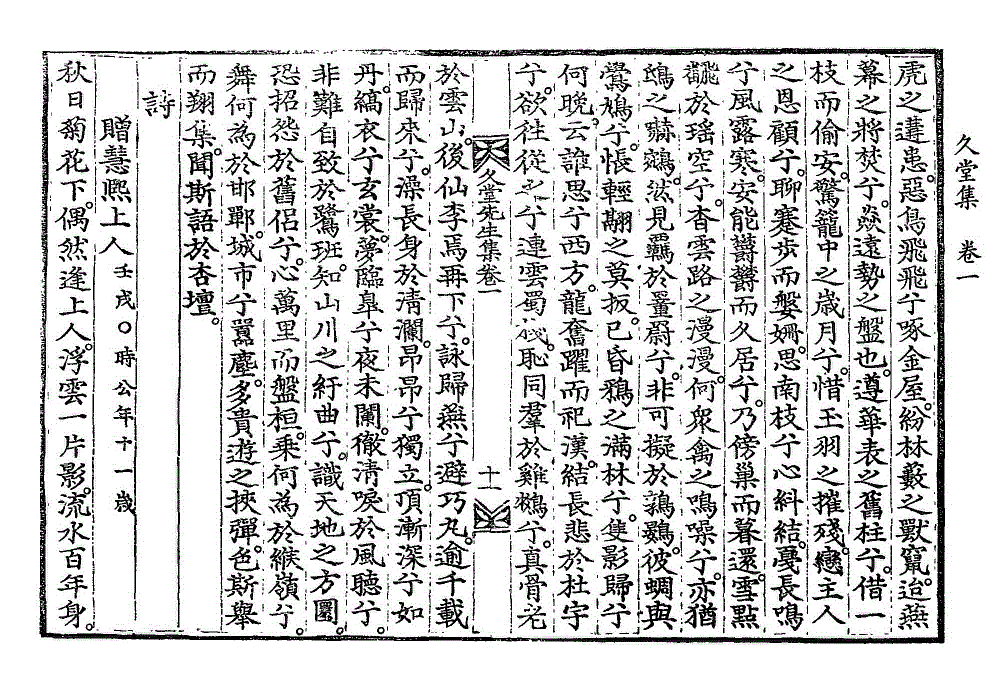 久堂集　卷一
虎之遘患。惡鳥飛飛兮啄金屋。紛林藪之獸竄。迨燕
幕之將焚兮。焱遠勢之盤也。遵華表之舊柱兮。借一
枝而偷安。驚籠中之歲月兮。惜玉羽之摧殘。戀主人
之恩顧兮。聊蹇步而媻姍。思南枝兮心糾結。戞長鳴
兮風露寒。安能欝欝而久居兮。乃傍巢而暮還。雪點
於瑶空兮。杳雲路之漫漫。何衆禽之鳴噪兮。亦猶
鴟之嚇鷄。然見覊於罿罻兮。非可擬於鶉鷃。彼蜩與
鸎鳩兮。悵輕翮之莫扳。已昏鴉之滿林兮。隻影歸兮
何晩。云誰思兮西方。龍奮躍而祀漢。結長悲於杜宇
兮。欲往從之兮連雲蜀棧。恥同羣於雞鶩兮。眞骨老
久堂先生集卷一　十一
於雲山。後仙李焉再下兮。詠歸燕兮避巧丸。逾千載
而歸來兮。澡長身於淸瀾。昂昂兮獨立。頂漸深兮如
丹。縞衣兮玄裳。夢臨臯兮夜未闌。徹淸唳於風聽兮。
非難自致於鷺班。知山川之紆曲兮。識天地之方圓。
恐招怨於舊侶兮。心萬里而盤桓。乘何爲於緱嶺兮。
舞何為於邯鄲。城市兮囂塵。多貴遊之挾彈。色斯舉
而翔集。聞斯語於杏壇。
詩
贈慧熙上人　壬戌○時公年十一歲
秋日菊花下。偶然逢上人。浮雲一片影。流水百年身。